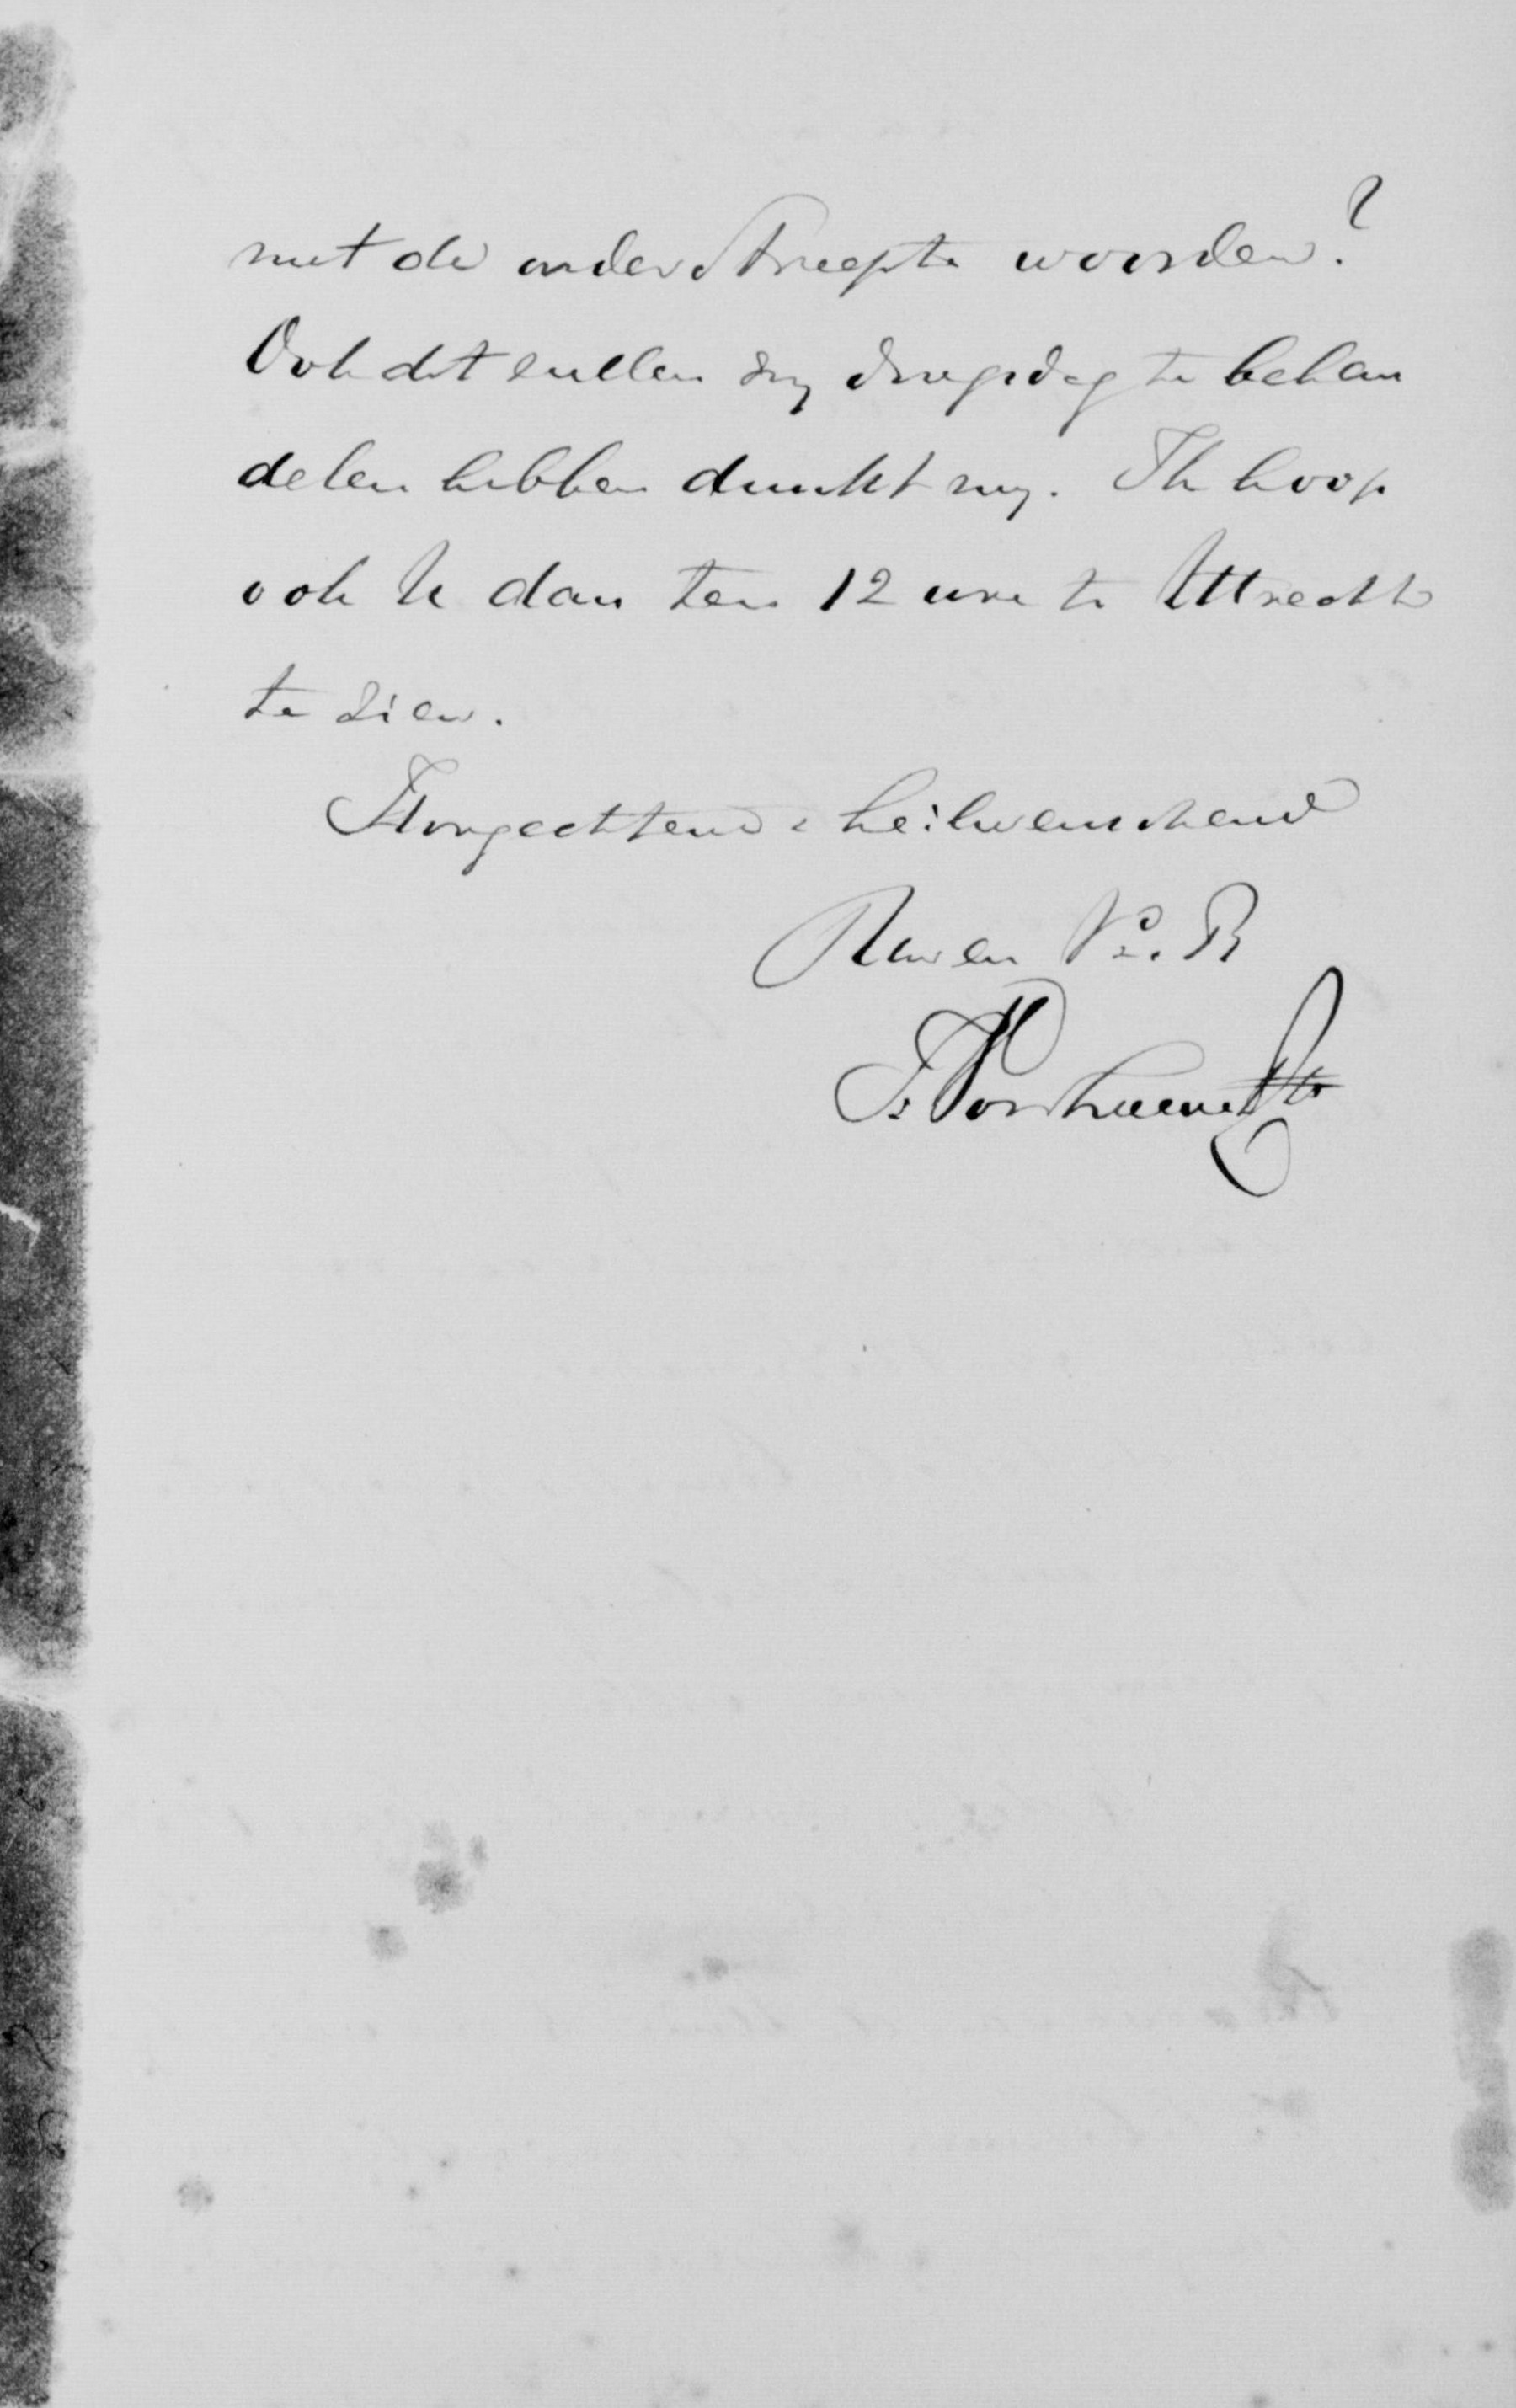 met de onderstreepte woorden?
Ook dit zullen wij dingsdag te behan
delen hebben dunkt mij. Ik hoop
ook U dan ten 12 ure te Uttrecht
te zien.
Hoogachtend & heilwenschend
Uw en Vr. Br